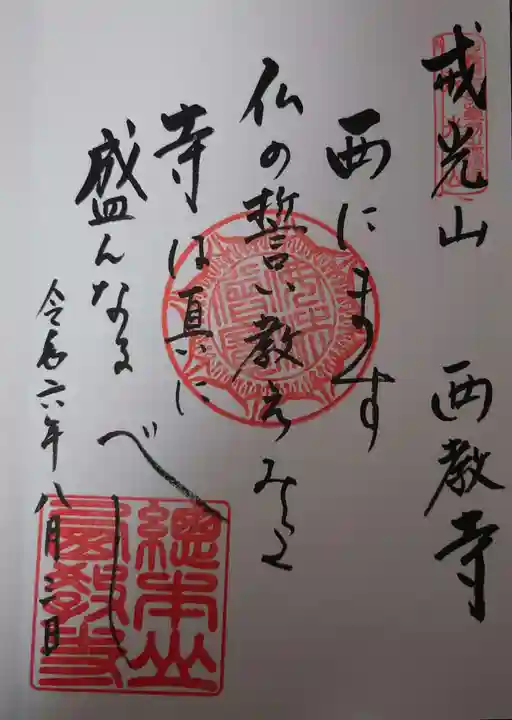 戒光山 西教寺
西にます
仏の誓い教えみて
寺は真に
盛んなる べし
令和六年八月三日
總本山
西教寺